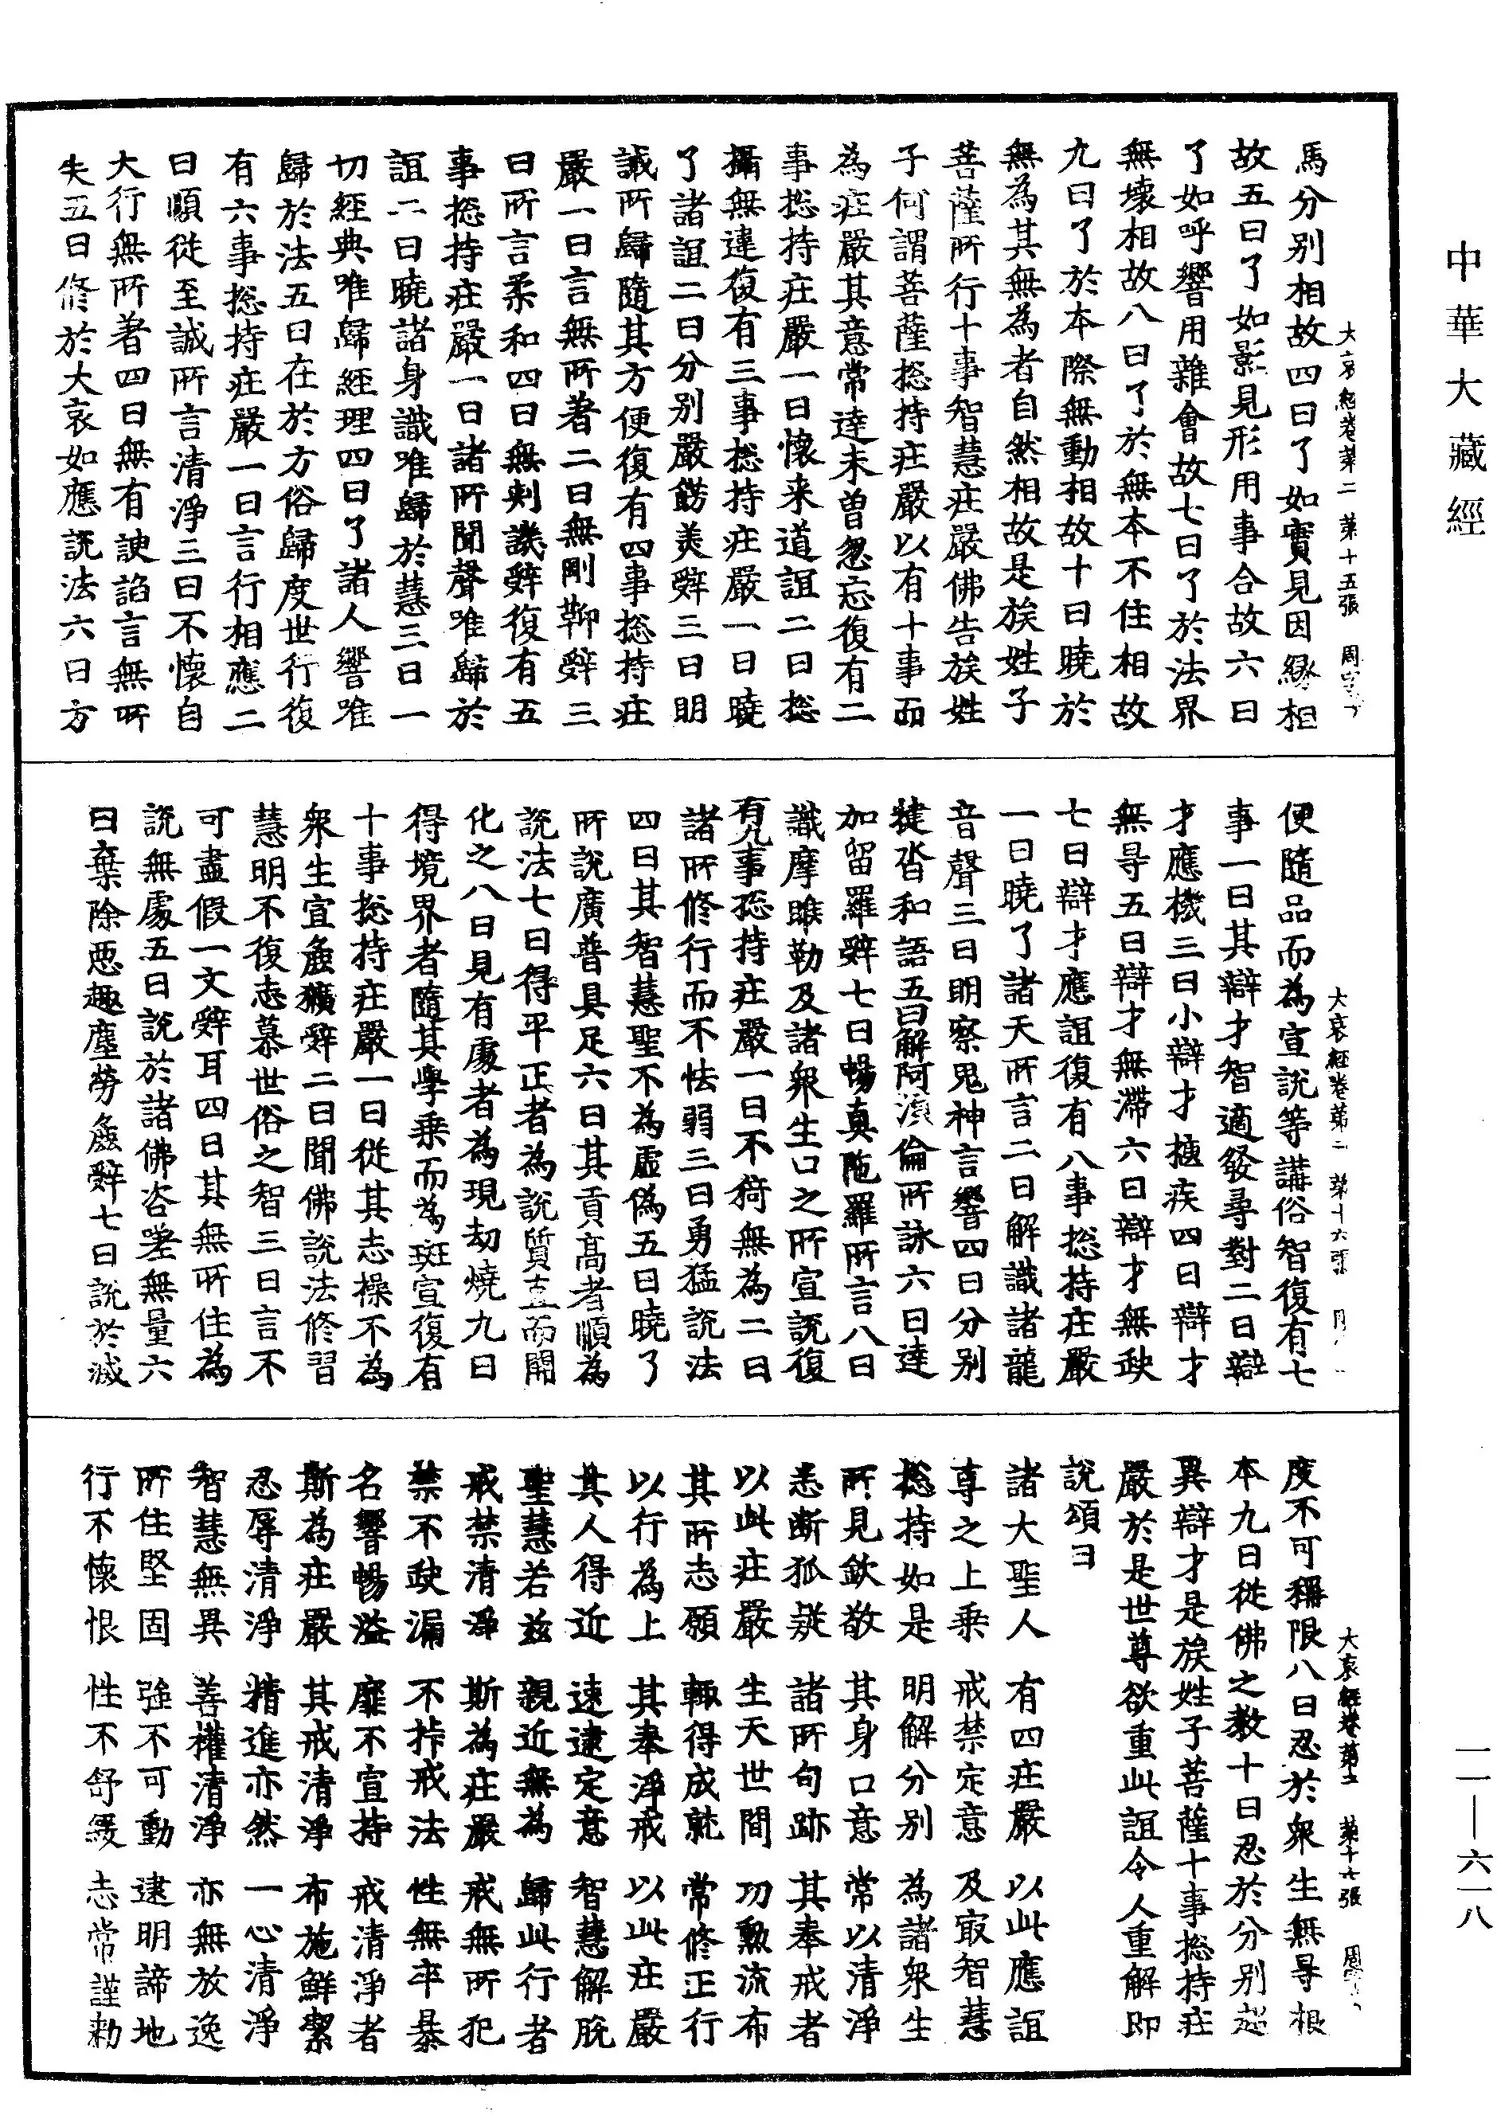 中華大藏經
大哀經卷第二　第十五張　周
馬分別相故四曰了如實見因緣相
故五曰了如影見形用事合故六曰
了如呼響用雜會故七曰了於法界
無壞相故八曰了於無本不住相故
九曰了於本際無動相故十曰曉於
無為其無為者自然相故是族姓子
菩薩所行十事智慧莊嚴佛告族姓
子何謂菩薩揔持莊嚴以有十事而
為莊嚴其意常達未曾忽忘復有二
事揔持莊嚴一曰懷来道誼二曰揔
攝無違復有三事揔持莊嚴一曰曉
了諸誼二曰分別嚴餝美辝三曰明
誠所歸隨其方便復有四事揔持莊
嚴一曰言無所著二曰無剛鞕辝三
曰所言柔和四曰無刺譏辝復有五
事揔持莊嚴一曰諸所聞聲唯歸於
誼二曰曉諸身識唯歸於慧三曰一
切經典唯歸經理四曰了諸人響唯
歸於法五曰在於方俗歸度世行復
有六事揔持莊嚴一曰言行相應二
曰順從至誠所言清淨三曰不懷自
大行無所著四曰無有諛諂言無所
失五曰修於大哀如應說法六曰方
大哀經卷第二　第十六張
便隨品而為宣說等講俗智復有七
事一曰其辯才智適發尋對二曰辯
才應機三曰小辯才㨗疾四曰辯才
無㝵五曰辯才無滯六曰辯才無𡙇
七曰辯才應誼復有八事揔持莊嚴
一曰曉了諸天所言二曰解識諸龍
音聲三曰明察鬼神言響四曰分別
揵沓和語五曰解阿湏倫所詠六曰達
加留羅辝七曰暢真陁羅所言八曰
識摩睺勒及諸衆生口之所宣說復
有九事揔持莊嚴一曰不猗無為二曰
諸所修行而不怯弱三曰勇猛說法
四曰其智慧聖不為虛偽五曰曉了
所說廣普具足六曰其貢高者順為
說法七曰得平正者為說質直而開
化之八曰見有處者為現劫燒九曰
得境界者隨其學乗而為班宣復有
十事揔持莊嚴一曰從其志操不為
衆生宜麁獷辝二曰聞佛說法修習
慧明不復志慕世俗之智三曰言不
可盡假一文辝耳四曰其無所住為
說無處五曰說於諸佛咨嗟無量六
曰棄除惡趣塵勞麁辝七曰說於滅
大哀經卷第二　第十七張　周
度不可稱限八曰忍於衆生無㝵根
本九曰從佛之教十曰忍於分別超
異辯才是族姓子菩薩十事揔持莊
嚴於是世尊欲重此誼令人重解即
說頌曰
諸大聖人　有四莊嚴　以此應誼
尊之上乗　戒禁定意　及㝡智慧
揔持如是　明解分別　為諸衆生
所見欽敬　其身口意　常以清淨
悉斷狐疑　諸所句跡　其奉戒者
以此莊嚴　生天世間　功勲流布
其所志願　輙得成就　常修正行
以行為上　其奉淨戒　以此莊嚴
其人得近　速逮定意　智慧解脫
聖慧若兹　親近無為　歸此行者
戒禁清淨　斯為莊嚴　戒無所犯
禁不𡙇漏　不捨戒法　性無卒暴
名響暢溢　靡不宣持　戒清淨者
斯為莊嚴　其戒清淨　布施鮮潔
忍辱清淨　精進亦然　一心清淨
智慧無異　善權清淨　亦無放逸
所住堅固　強不可動　逮明諦地
行不懷恨　性不舒緩　志常謹勑
一一—六一八